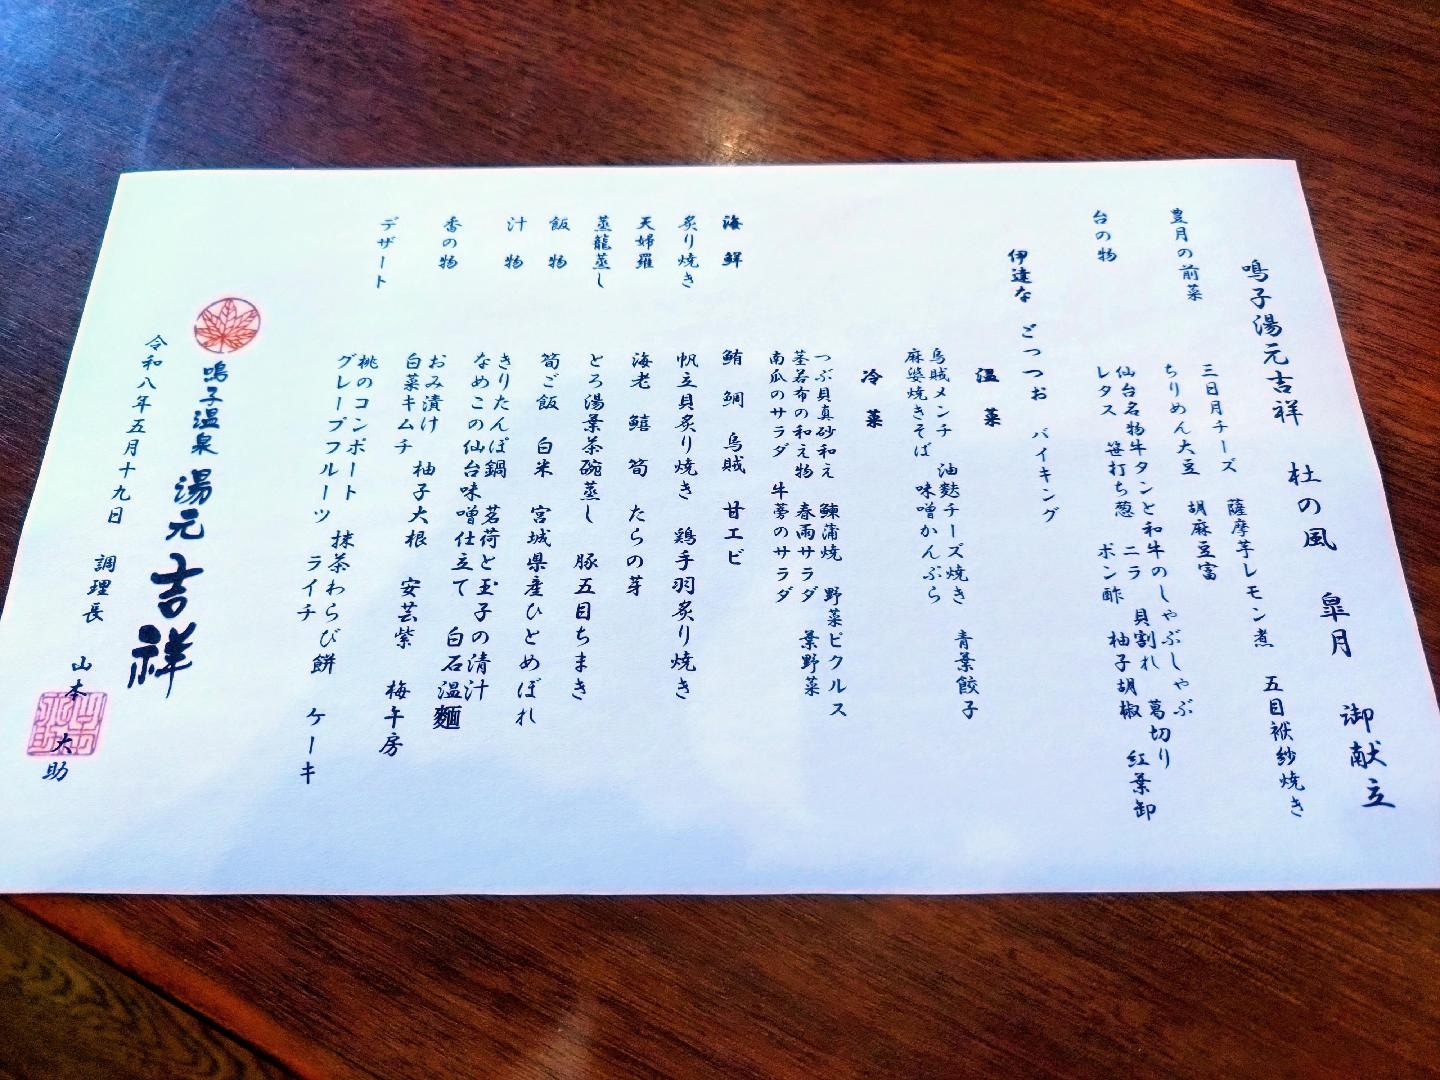 鳴子湯元吉祥 杜の風 皐月 御献立
豊月の前菜
三日月チーズ 薩摩芋レモン煮 五目袱紗焼き
ちりめん大豆 胡麻豆富
台の物
仙台名物牛タンと和牛のしゃぶしゃぶ
レタス 笹打ち葱 ニラ 貝割れ 葛切り
ポン酢 柚子胡椒 紅葉卸
伊達な ごっつお バイキング
温菜
烏賊メンチ 油麩チーズ焼き 青葉餃子
麻婆焼きそば 味噌かんぷら
冷菜
つぶ貝真砂和え 鰊蒲焼 野菜ピクルス
茎若布の和え物 春雨サラダ 葉野菜
南瓜のサラダ 牛蒡のサラダ
海鮮 鮪 鯛 烏賊 甘エビ
炙り焼き 帆立貝炙り焼き 鶏手羽炙り焼き
天婦羅 海老 鱚 筍 たらの芽
蒸籠蒸し とろ湯葉茶碗蒸し 豚五目ちまき
飯物 筍ご飯 白米 宮城県産ひとめぼれ
汁物 きりたんぽ鍋 茗荷と玉子の清汁
なめこの仙台味噌仕立て 白石温麺
香の物 おみ漬け 柚子大根 安芸紫 梅牛房
白菜キムチ
デザート 桃のコンポート 抹茶わらび餅 ケーキ
グレープフルーツ ライチ
鳴子温泉 湯元 吉祥
令和八年五月十九日
調理長 山本 大助